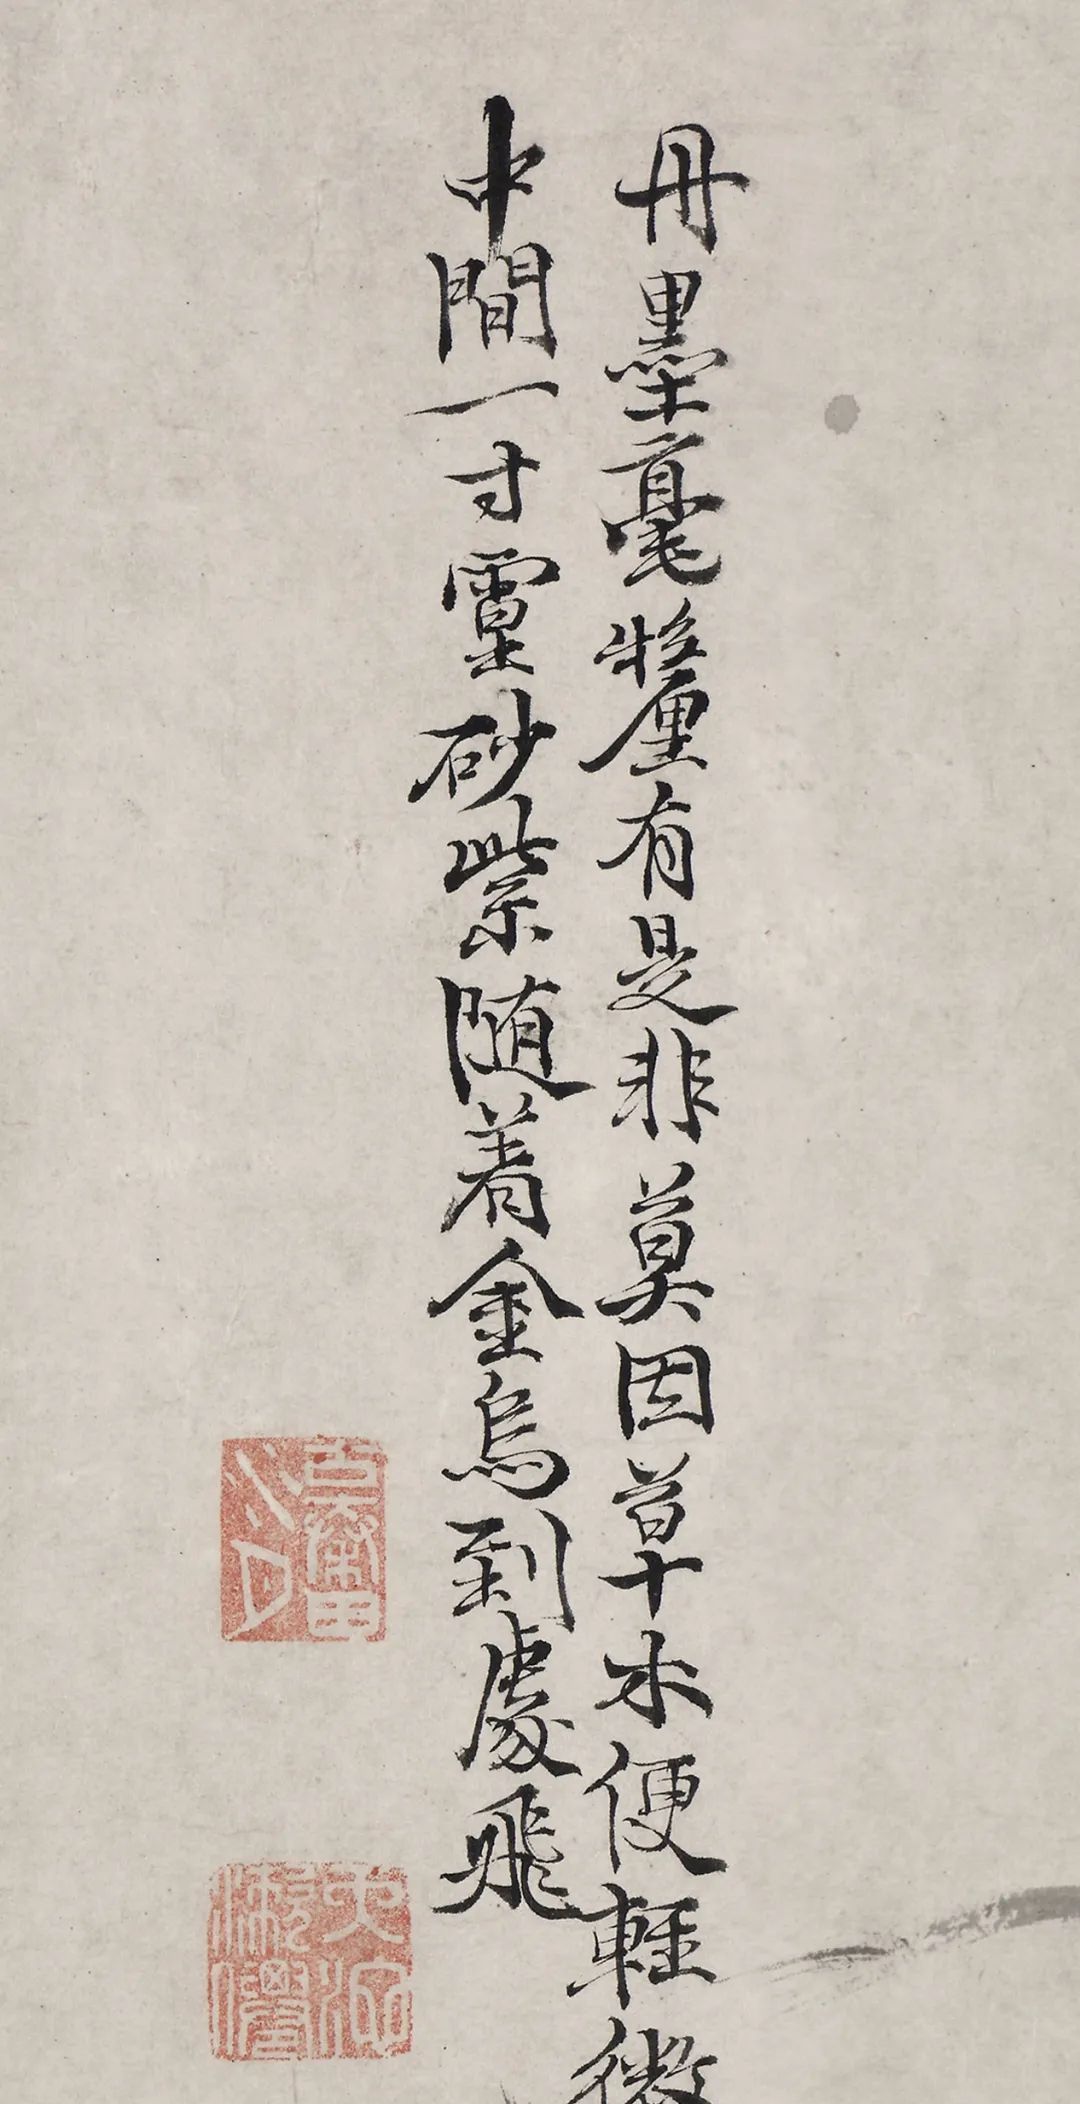 丹墨毫釐有是非莫因草木便輕微
中間一寸靈砂紫随着金烏到處飛
天池漱僊